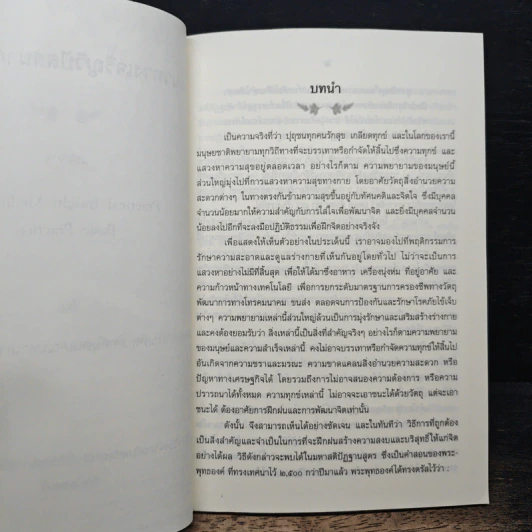 บทนำ
เป็นความจริงที่ว่า ปุถุชนทุกคนรักสุข เกลียดทุกข์ และในโลกของเรานี้
มนุษยชาติพยายามทุกวิถีทางที่จะบรรเทาหรือกำจัดให้สิ้นไปซึ่งความทุกข์ และ
แสวงหาความสุขอยู่ตลอดเวลา อย่างไรก็ตาม ความพยายามของมนุษย์นี้
ส่วนใหญ่มุ่งไปที่การแสวงหาความสุขทางกาย โดยอาศัยวัตถุสิ่งอำนวยความ
สะดวกต่างๆ ในทางตรงกันข้ามความสุขขึ้นอยู่กับทัศนคติและจิตใจ ซึ่งมีบุคคล
จำนวนน้อยมากให้ความสำคัญกับการใส่ใจเพื่อพัฒนาจิต และยิ่งมีบุคคลจำนวน
น้อยลงไปอีกที่จะลงมือปฏิบัติธรรมเพื่อฝึกจิตอย่างจริงจัง
เพื่อแสดงให้เห็นตัวอย่างในประเด็นนี้ เราอาจมองไปที่พฤติกรรมการ
รักษาความสะอาดและดูแลร่างกายที่เห็นกันอยู่โดยทั่วไป ไม่ว่าจะเป็นการ
แสวงหาอย่างไม่มีที่สิ้นสุด เพื่อให้ได้มาซึ่งอาหาร เครื่องนุ่งห่ม ที่อยู่อาศัย และ
ความก้าวหน้าทางเทคโนโลยี เพื่อการยกระดับมาตรฐานการครองชีพทางวัตถุ
พัฒนาการทางโทรคมนาคม ขนส่ง ตลอดจนการป้องกันและรักษาโรคภัยไข้เจ็บ
ต่างๆ ความพยายามเหล่านี้ส่วนใหญ่ล้วนเป็นการมุ่งรักษาและเสริมสร้างร่างกาย
และคงต้องยอมรับว่า สิ่งเหล่านี้เป็นสิ่งที่สำคัญจริงๆ อย่างไรก็ตามความพยายาม
ของมนุษย์และความสำเร็จเหล่านี้ คงไม่อาจบรรเทาหรือกำจัดความทุกข์ให้สิ้นไป
อันเกิดจากความชราและมรณะ ความขาดแคลนสิ่งอำนวยความสะดวก หรือ
ปัญหาทางเศรษฐกิจได้ โดยรวมถึงการไม่อาจสนองความต้องการ หรือความ
ปรารถนาได้ทั้งหมด ความทุกข์เหล่านี้ ไม่อาจเอาชนะได้ด้วยวัตถุ แต่จะเอา
ชนะได้ ต้องอาศัยการฝึกฝนและการพัฒนาจิตเท่านั้น
ดังนั้น จึงสามารถเห็นได้อย่างชัดเจน และในทันทีว่า วิธีการที่ถูกต้อง
เป็นสิ่งสำคัญและจำเป็นในการที่จะฝึกฝนสร้างความสงบและบริสุทธิ์ให้แก่จิต
อย่างได้ผล วิธีดังกล่าวจะพบได้ในมหาสติปัฏฐานสูตร ซึ่งเป็นคำสอนของพระ-
พุทธองค์ ที่ทรงเทศนาไว้ ๒,๕๐๐ กว่าปีมาแล้ว พระพุทธองค์ได้ทรงตรัสไว้ว่า :